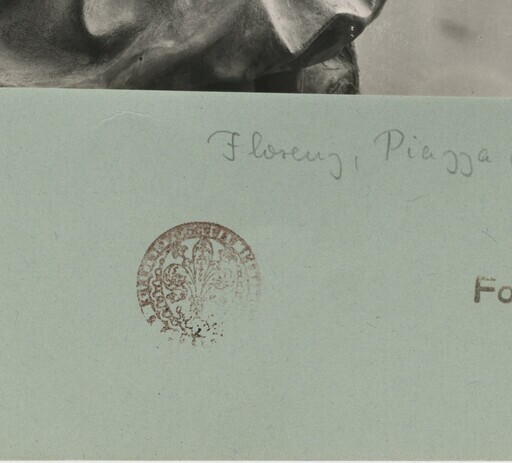 Florenz, Piazza
Fo